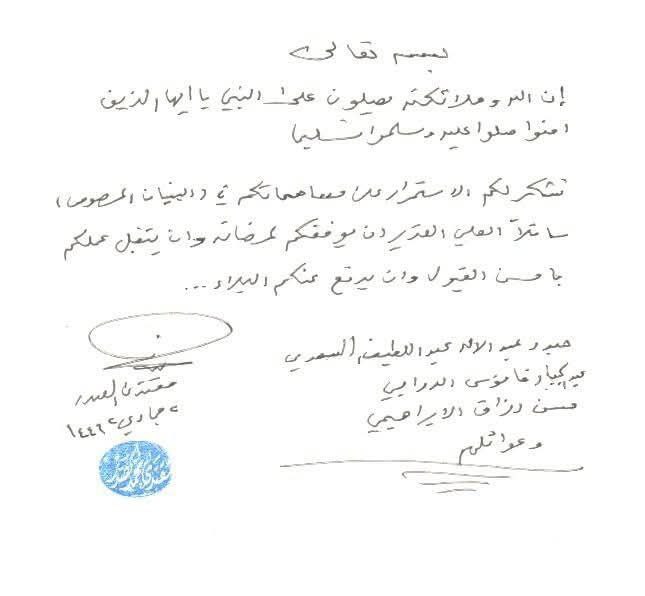 بسمه تعالى
إن الله وملائكته يصلون على النبي يا ايها الذين
امنوا صلوا عليه وسلموا تسليما
نشكر لكم الاستمرار على مساهماتكم في (البنيان المرصوص)
سائلاً العلي القدير ان يوفقكم لمرضاته وان يتقبل عملكم
باحسن القبول وان يدفع عنكم البلاء ...
عبد الاله عبد اللطيف السعدي
عبد الجبار الدراجي
حسن رزاق الابراهيمي
وعوائلهم
مقتدى الصدر
٢ جمادي٢ ١٤٤٦